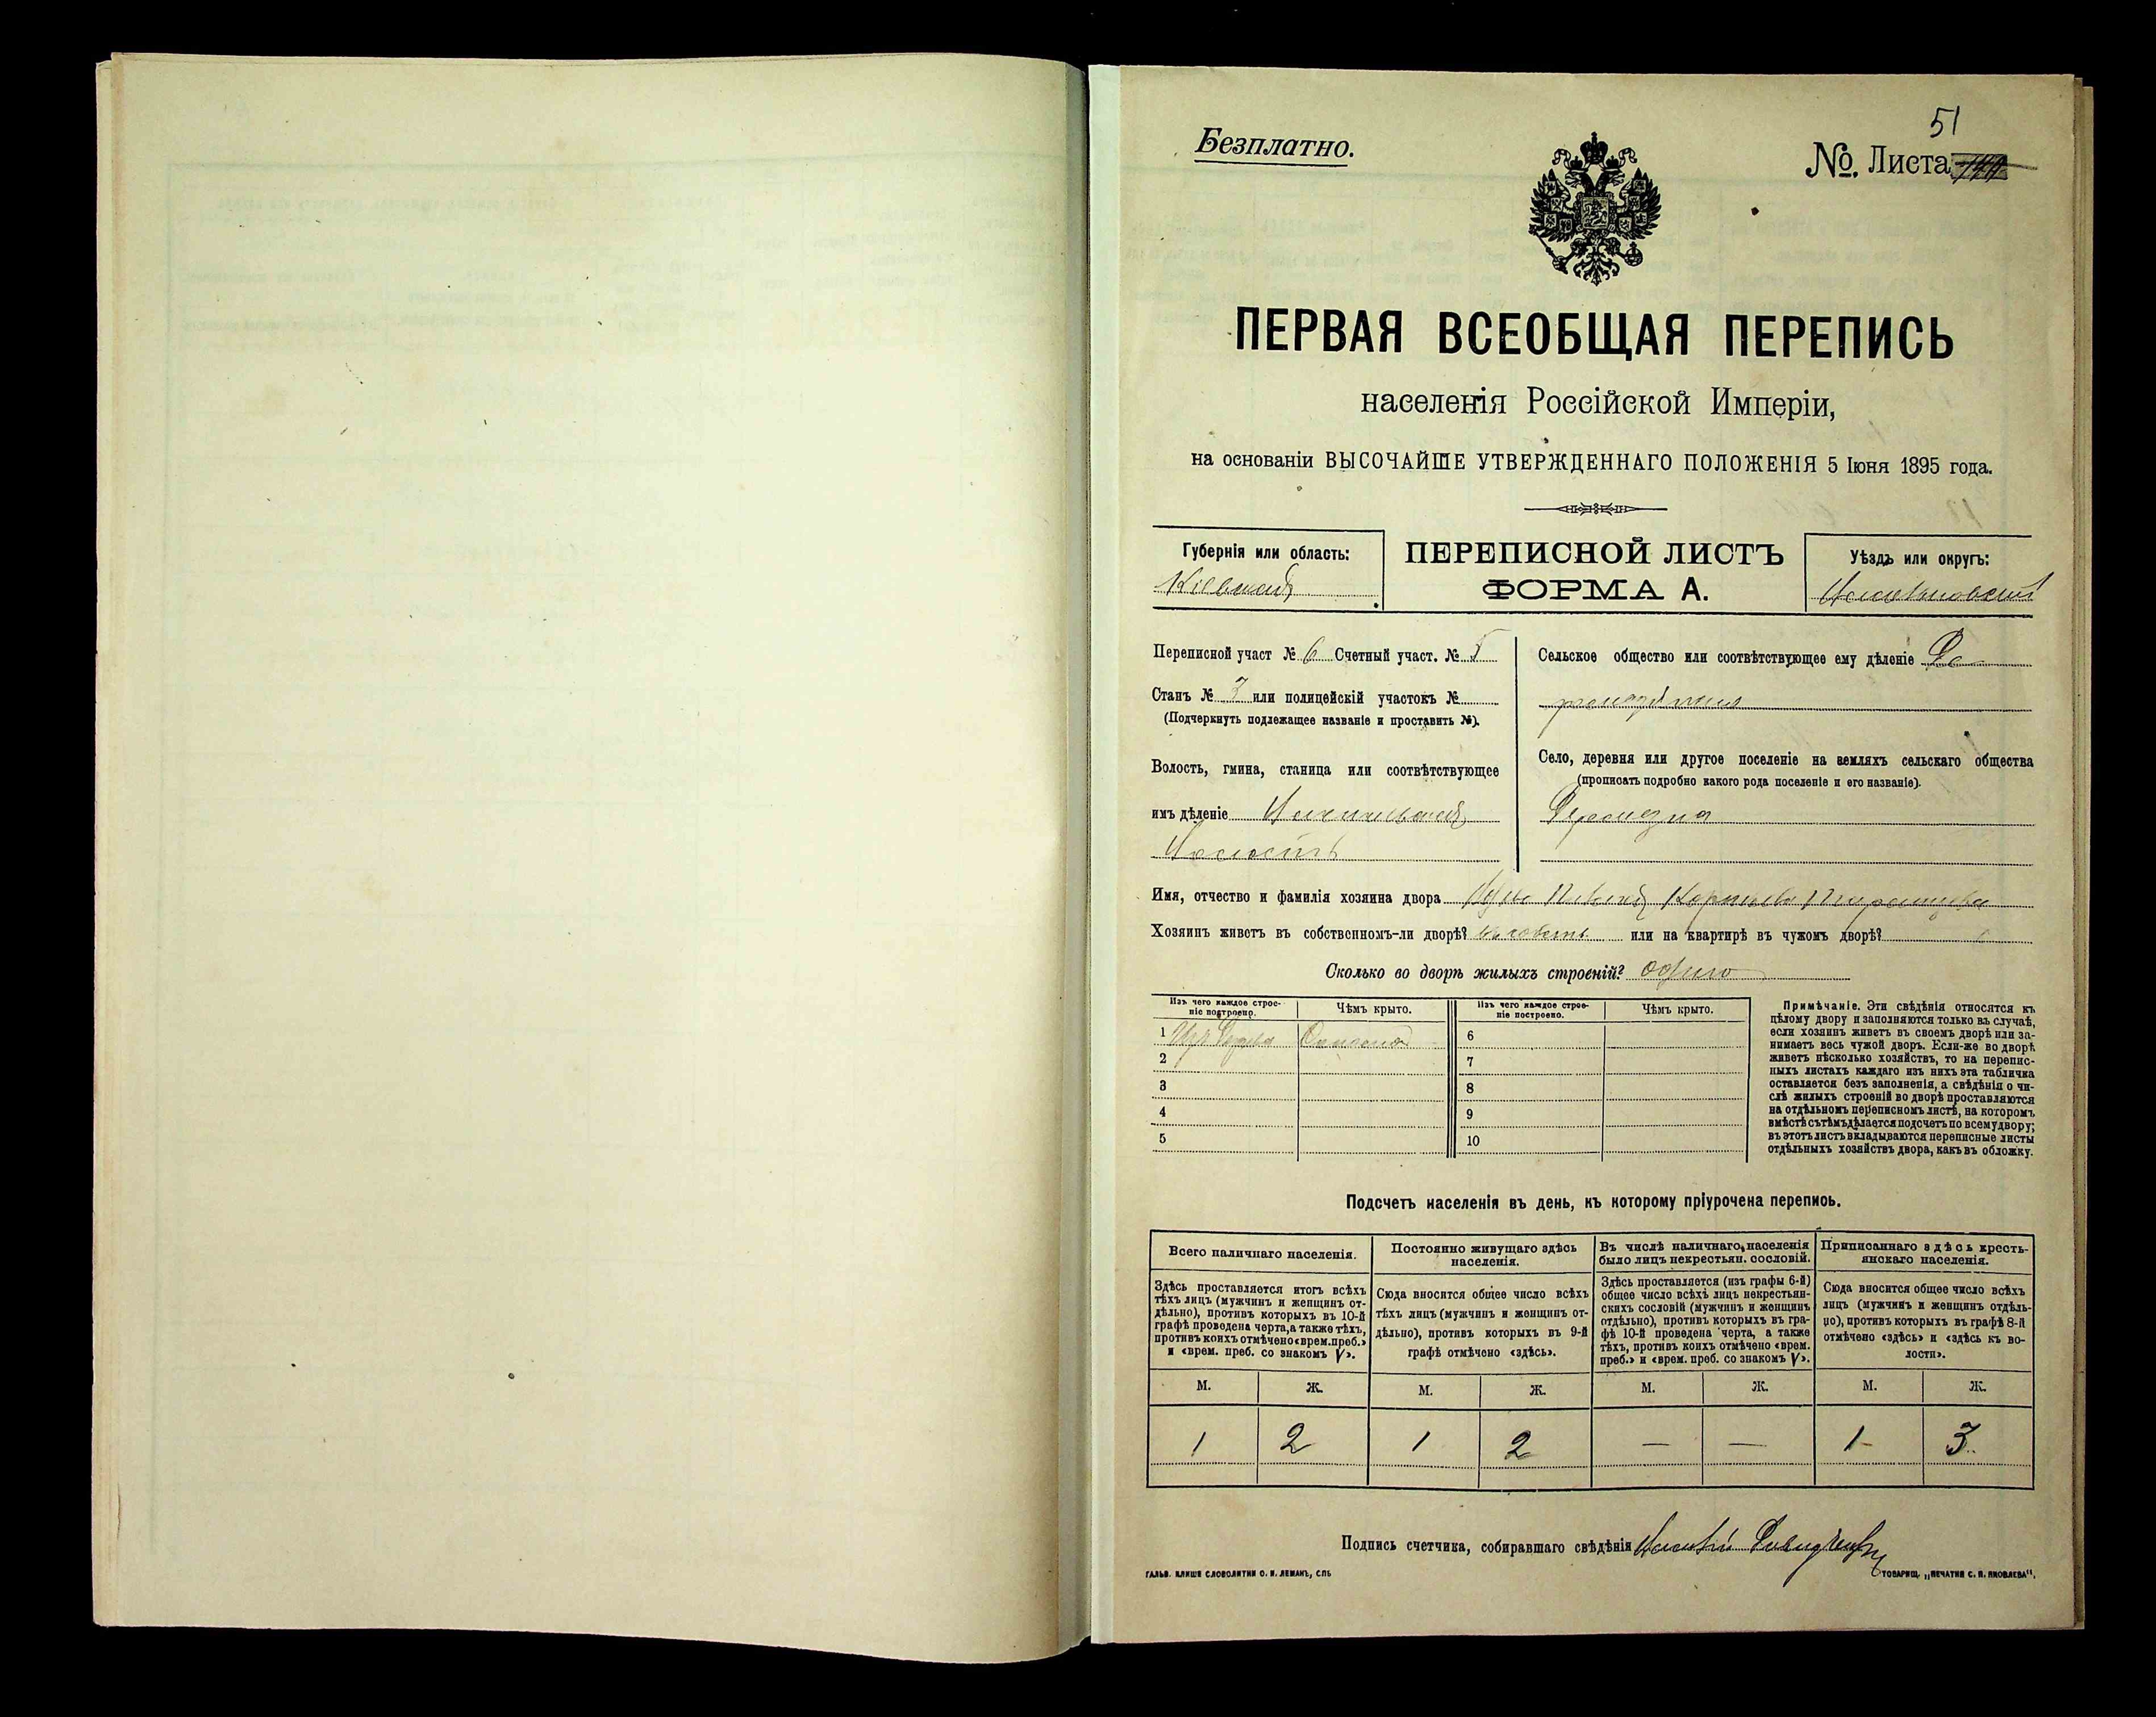 51
Безплатно.
№. Листа
ПЕРВАЯ ВСЕОБЩАЯ ПЕРЕПИСЬ
населенія Россійской Имперіи,
на основаніи ВЫСОЧАЙШЕ УТВЕРЖДЕННАГО ПОЛОЖЕНІЯ 5 Іюня 1895 года.
Губернія или область:
Кіевская
ПЕРЕПИСНОЙ ЛИСТЪ
ФОРМА А.
Уѣздъ или округъ:
Переписной участ № 6 Счетный участ. № 5
Станъ № 3 или полицейскій участокъ №
(Подчеркнуть подлежащее названіе и проставить №).
Волость, гмина, станица или соотвѣтствующее
имъ дѣленіе
Волость
Сельское общество или соотвѣтствующее ему дѣленіе
Село, деревня или другое поселеніе на земляхъ сельскаго общества
(прописать подробно какого рода поселеніе и его названіе).
Имя, отчество и фамилія хозяина двора
Хозяинъ живетъ въ собственномъ-ли дворѣ? или на квартирѣ въ чужомъ дворѣ?
Сколько во дворѣ жилыхъ строеній? одино
Изъ чего каждое строе-
ніе построено.
Чѣмъ крыто.
Изъ чего каждое строе-
ніе построено.
Чѣмъ крыто.
1 Изъ Дерева Соломой
2
3
4
5
6
7
8
9
10
Примѣчаніе. Эти свѣдѣнія относятся къ
цѣлому двору и заполняются только въ случаѣ,
если хозяинъ живетъ въ своемъ дворѣ или за-
нимаетъ весь чужой дворъ. Если-же во дворѣ
живетъ нѣсколько хозяйствъ, то на перепис-
ныхъ листахъ каждаго изъ нихъ эта табличка
оставляется безъ заполненія, а свѣдѣнія о чи-
слѣ жилыхъ строеній во дворѣ проставляются
на отдѣльномъ переписномъ листѣ, на которомъ
вмѣстѣ съ тѣмъ дѣлается подсчетъ по всему двору;
въ этотъ листъ вкладываются переписные листы
отдѣльныхъ хозяйствъ двора, какъ въ обложку.
Подсчетъ населенія въ день, къ которому пріурочена перепись.
Всего наличнаго населенія.
Здѣсь проставляется итогъ всѣхъ
тѣхъ лицъ (мужчинъ и женщинъ от-
дѣльно), противъ которыхъ въ 10-й
графѣ проведена черта, а также тѣхъ,
противъ коихъ отмѣчено «врем. преб.»
и «врем. преб. со знакомъ V».
Постоянно живущаго здѣсь
населенія.
Сюда вносится общее число всѣхъ
тѣхъ лицъ (мужчинъ и женщинъ от-
дѣльно), противъ которыхъ въ 9-й
графѣ отмѣчено «здѣсь».
Въ числѣ наличнаго населенія
было лицъ некрестьян. сословій.
Здѣсь проставляется (изъ графы 6-й)
общее число всѣхъ лицъ некрестьян-
скихъ сословій (мужчинъ и женщинъ
отдѣльно), противъ которыхъ въ гра-
фѣ 10-й проведена черта, а также
тѣхъ, противъ коихъ отмѣчено «врем.
преб.» и «врем. преб. со знакомъ V».
Приписаннаго здѣсь кресть-
янскаго населенія.
Сюда вносится общее число всѣхъ
лицъ (мужчинъ и женщинъ отдѣль-
но), противъ которыхъ въ графѣ 8-й
отмѣчено «здѣсь» и «здѣсь къ во-
лости».
М. Ж. М. Ж. М. Ж. М. Ж.
1 2 1 2 — — 1 3
Подпись счетчика, собиравшаго свѣдѣнія
ГАЛЬВ. КЛИШЕ СЛОВОЛИТНИ О. И. ЛЕМАНЪ, СПБ
ТОВАРИЩ. „ПЕЧАТНЯ С. П. ЯКОВЛЕВА".